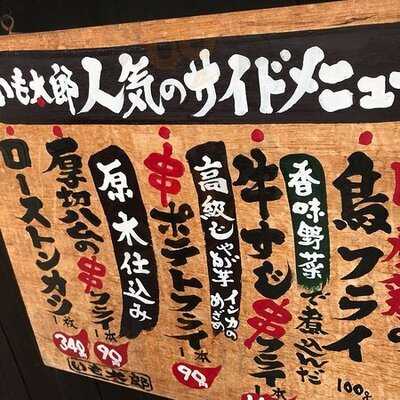 いも太郎 人気のサイドメニュー
鳥フライ
100g
香味野菜で煮込んだ
牛すじ串フライ 一本
高級じゃが芋
インカのめざめ
串ポテトフライ 一本
90円
原木仕込み
厚切ハムの串フライ 一本
90円
ローストンカツ 一枚
340円
いも太郎